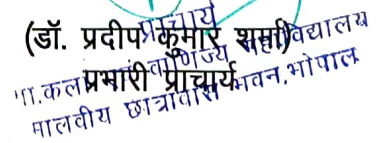 (डॉ. प्रदीप कुमार शर्मा)
प्रभारी प्राचार्य
प्राचार्य
वाणिज्य महाविद्यालय
मालवीय छात्रावास भवन, भोपाल